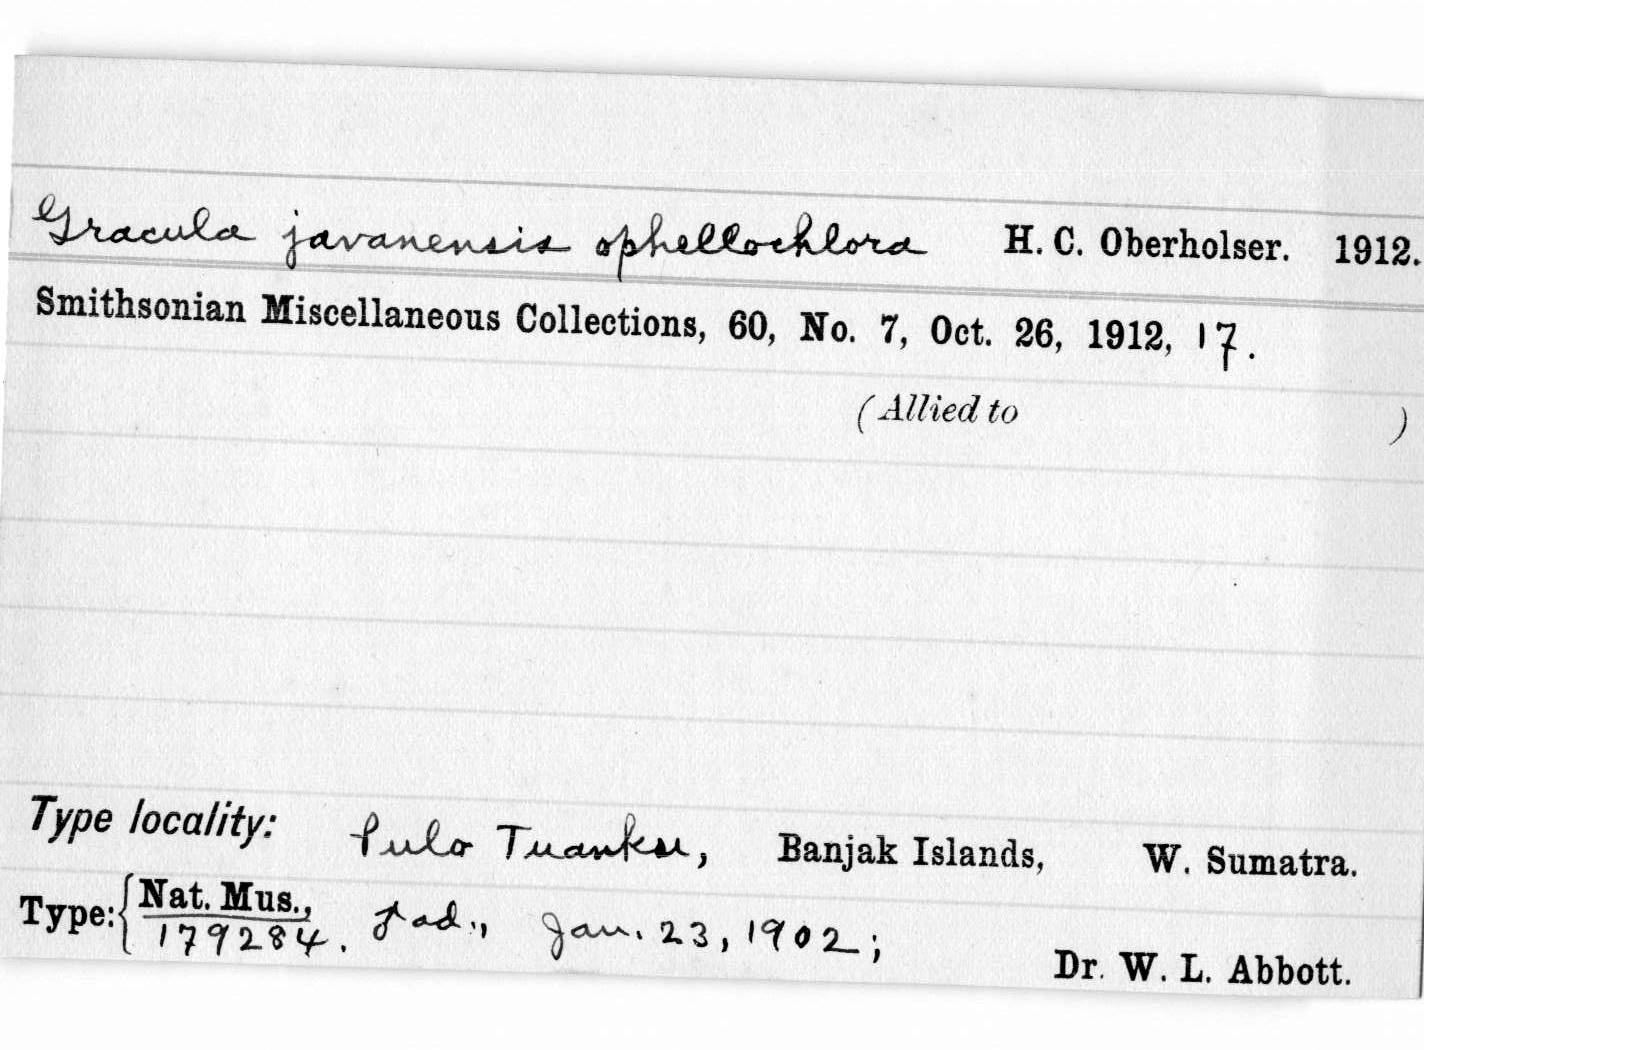 Gracula javanensis ophellochlora H. C. Oberholser. 1912.
Smithsonian Miscellaneous Collections, 60, No. 7, Oct. 26, 1912, 17.
(Allied to )
Type locality: Pulo Tuanku, Banjak Islands, W. Sumatra.
Type: { Nat. Mus., 179284. ad., Jan. 23, 1902;
Dr. W. L. Abbott.